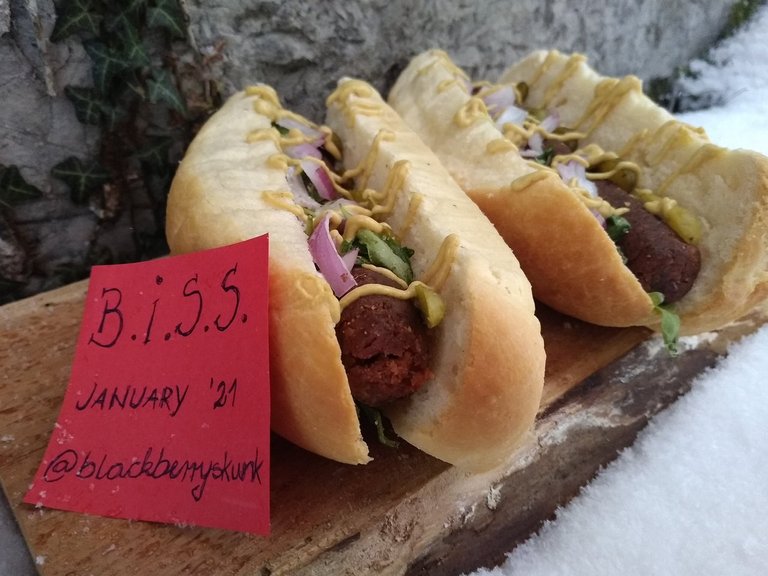 B.i.S.S.
JANUARY '21
@blackberryskunk